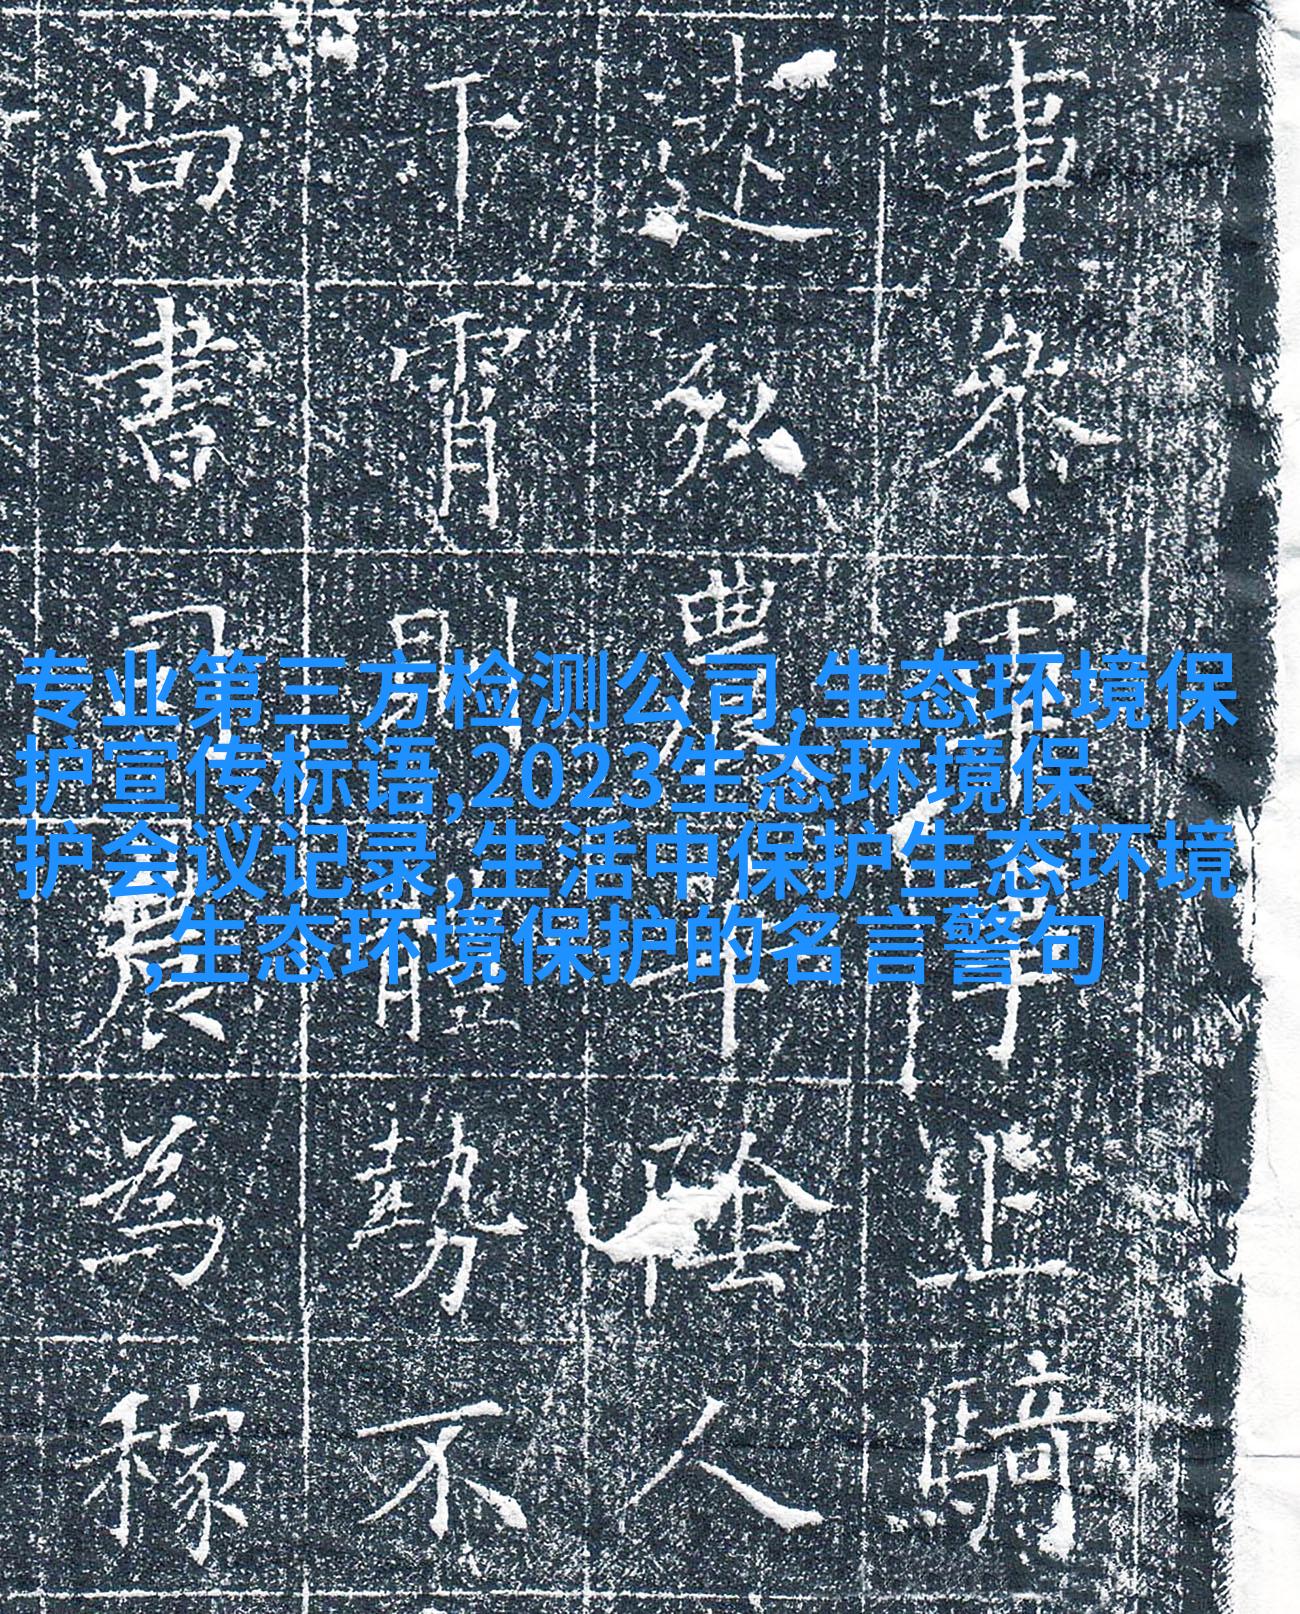 专业第三方检测公司,生态环境保
护宣传标语,2023生态环境保
护会议记录,生活中保护生态环境
,生态环境保护的名言警句
事軍事騎
農人
下霄別體勢不
尚書司農為稼